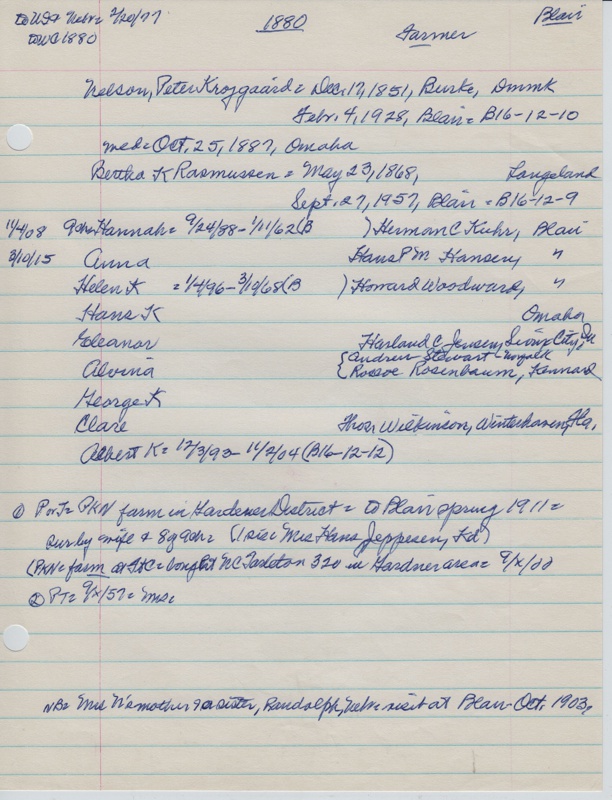 to USA Nebr = 2/20/77
to WC 1880
1880
Farmer
Blair
Nelson, Peter Krojgaard = Dec. 17, 1851, Burke, Dnmk
Febr. 4, 1928, Blair = B16-12-10
md = Oct. 25, 1887, Omaha
Bertha K Rasmussen = May 23, 1868, Langeland
Sept. 27, 1957, Blair = B16-12-9
11/4/08 9ch = Hannah = 9/24/88 - 1/11/62 (B ) Herman C Kuhr, Blair
3/10/15 Anna Hans P M Hansen, "
Helen K = 1/4/96 - 3/10/68 (B ) Howard Woodward, "
Hans K Omaha
Eleanor Harland C Jensen, Sioux City, Ia
Alvina { Andrew Stewart - Norfolk
{ Roscoe Rosenbaum, Kennard
George K
Clare Thos. Wilkinson, Winterhaven, Fla.
Albert K = 12/3/93 - 11/2/04 (B16-12-12)
① P or T = PKN farm in Gardener District = to Blair spring 1911 =
sur by wife + 8 ch = (1 sis = Mrs Hans Jeppesen, Fd)
(PKN = farm at = bought NC Tarleton 320 in Gardner area = 9/x/00
② PT = 9/x/57 = Mrs
NB = Mrs N's mother + a sister, Randolph, Nebr = visit at Blair - Oct. 1903.